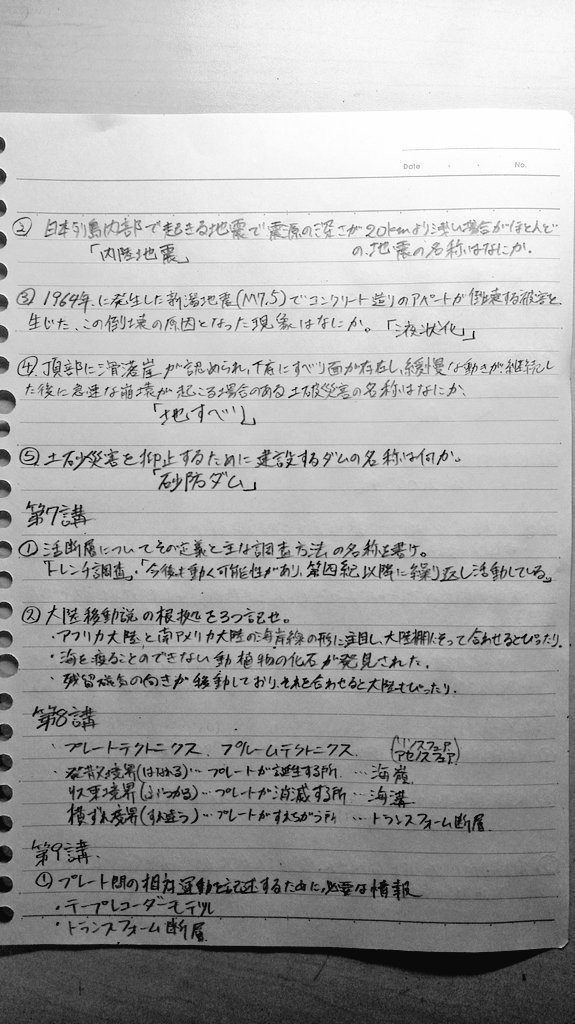 Date ・ ・ No.
② 日本列島内部で起きる地震で震源の深さが20kmより浅い場合がほとんど
「内陸地震」 の地震の名称はなにか.
③ 1964年に発生した新潟地震(M7.5)でコンクリート造りのアパートが倒壊する被害を
生じた、この倒壊の原因となった現象はなにか。「液状化」
④ 頂部に滑落崖が認められ、下底にすべり面が存在し、緩慢な動きが継続し
た後に急速な崩壊が起こる場合のある土砂災害の名称はなにか、
「地すべり」
⑤ 土砂災害を抑止するために建設するダムの名称は何か。
「砂防ダム」
第7講
① 活断層についてその定義と主な調査方法の名称を書け。
「トレンチ調査」・「今後も動く可能性があり、第四紀以降に繰り返し活動している」
② 大陸移動説の根拠を3つ記せ。
・アフリカ大陸と南アメリカ大陸の海岸線の形に注目し、大陸棚にそって合わせるとぴったり.
・海を渡ることのできない動植物の化石が発見された.
・残留磁気の向きが移動しており、それを合わせると大陸もぴったり.
第8講
・プレートテクトニクス、プルームテクトニクス (リソスフェア
アセノスフェア)
・発散境界(はなれる)… プレートが誕生する所 … 海嶺
収束境界(ぶつかる)… プレートが消滅する所 … 海溝
横ずれ境界(すれ違う)… プレートがすれちがう所 … トランスフォーム断層
第9講
① プレート間の相対運動を記述するために必要な情報
・テープレコーダーモデル
・トランスフォーム断層